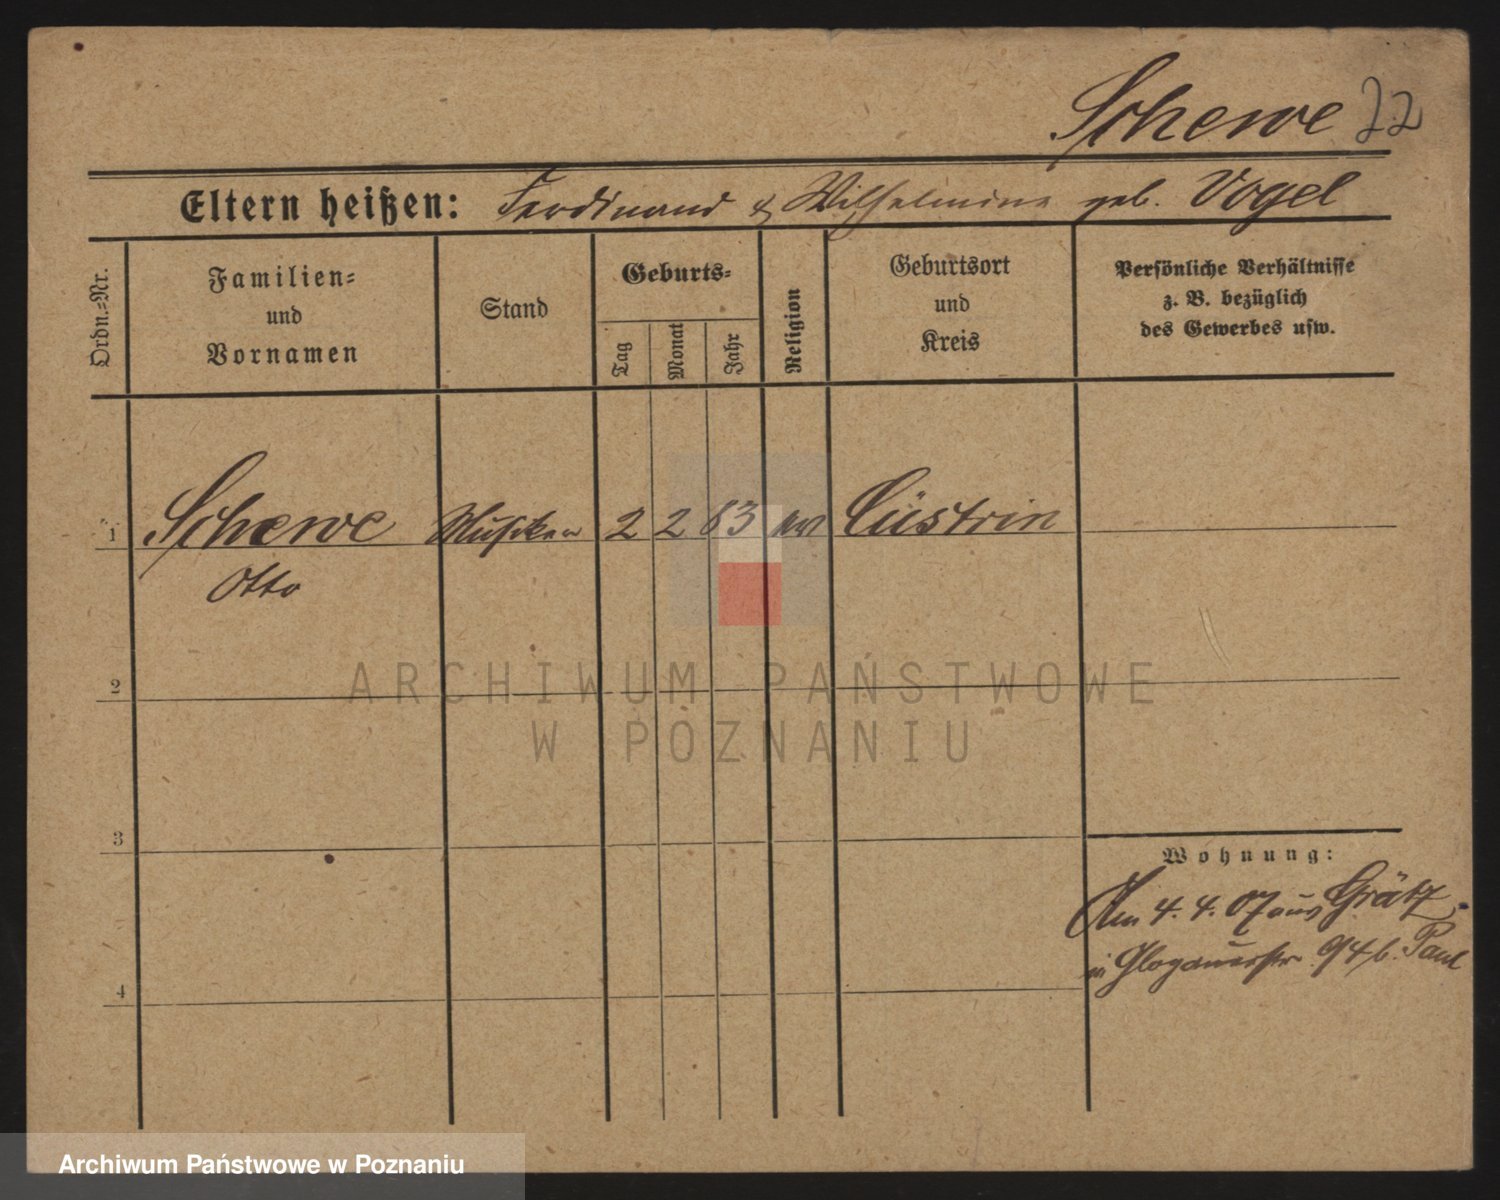 Schewe 22
Eltern heißen: Ferdinand & Wilhelmine geb. Vogel
Ordn.-Nr.
Familien-
und
Vornamen
Stand
Geburts-
Tag
Monat
Jahr
Religion
Geburtsort
und
Kreis
Persönliche Verhältnisse
z. B. bezüglich
des Gewerbes usw.
1 Schewe Musiker 2 2 83 ev Cüstrin
Otto
2
3
4
Wohnung:
Am 4. 4. 07 aus Grätz,
in Glogauerstr 94 b. Paul
ARCHIWUM PAŃSTWOWE
W POZNANIU
Archiwum Państwowe w Poznaniu